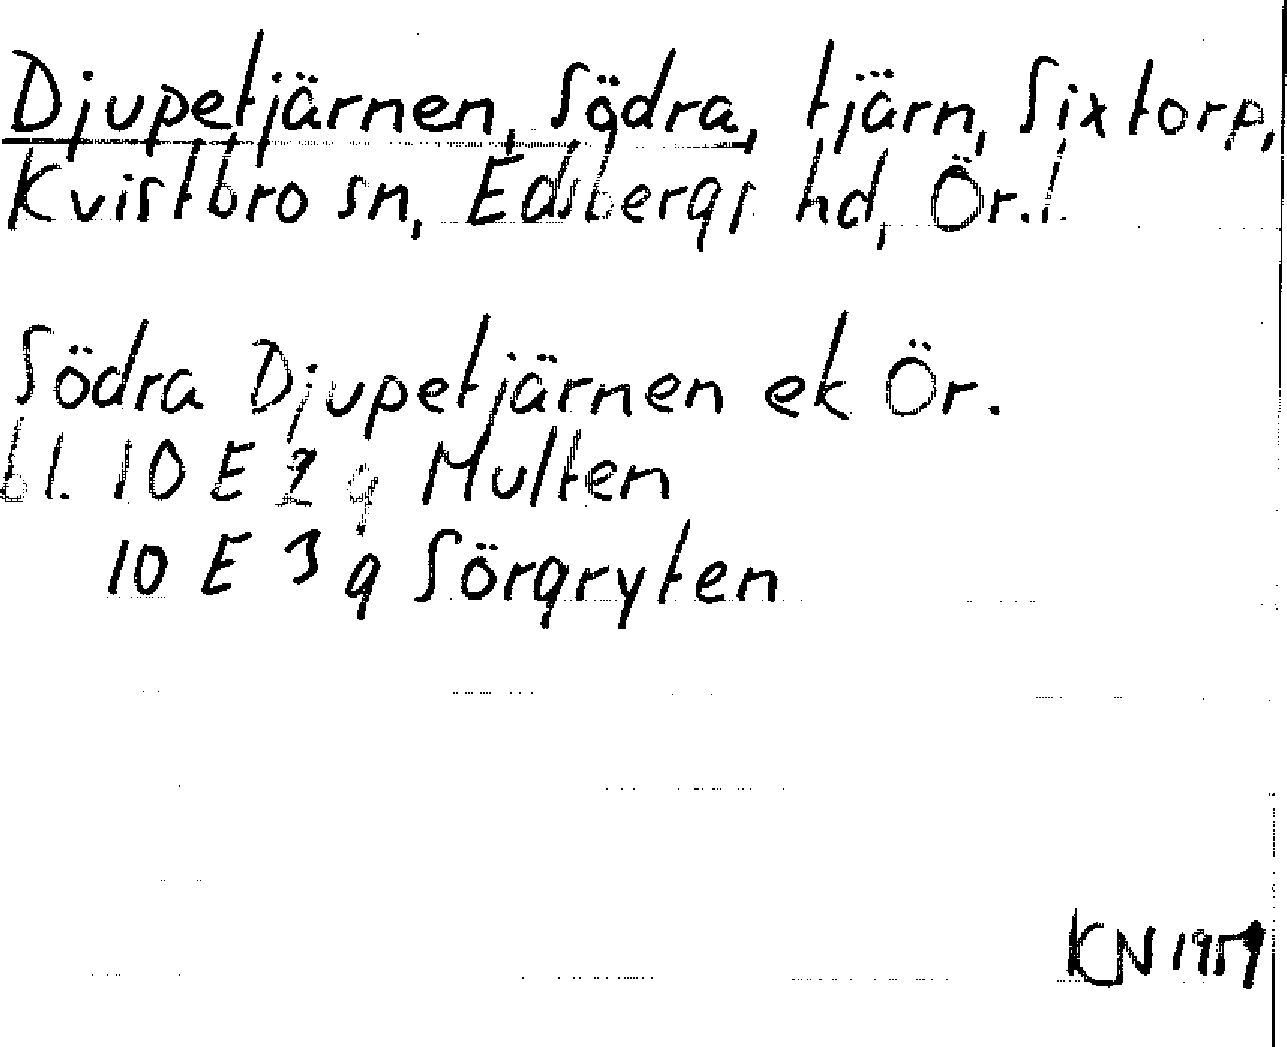 Djupetjärnen, Södra, tjärn, Sixtorp,
Kvistbro sn, Edsbergs hd, Ör.l.
Södra Djupetjärnen ek Ör.
bl. 10 E 2 g Multen
10 E 3 g Sörgryten
KN 1959